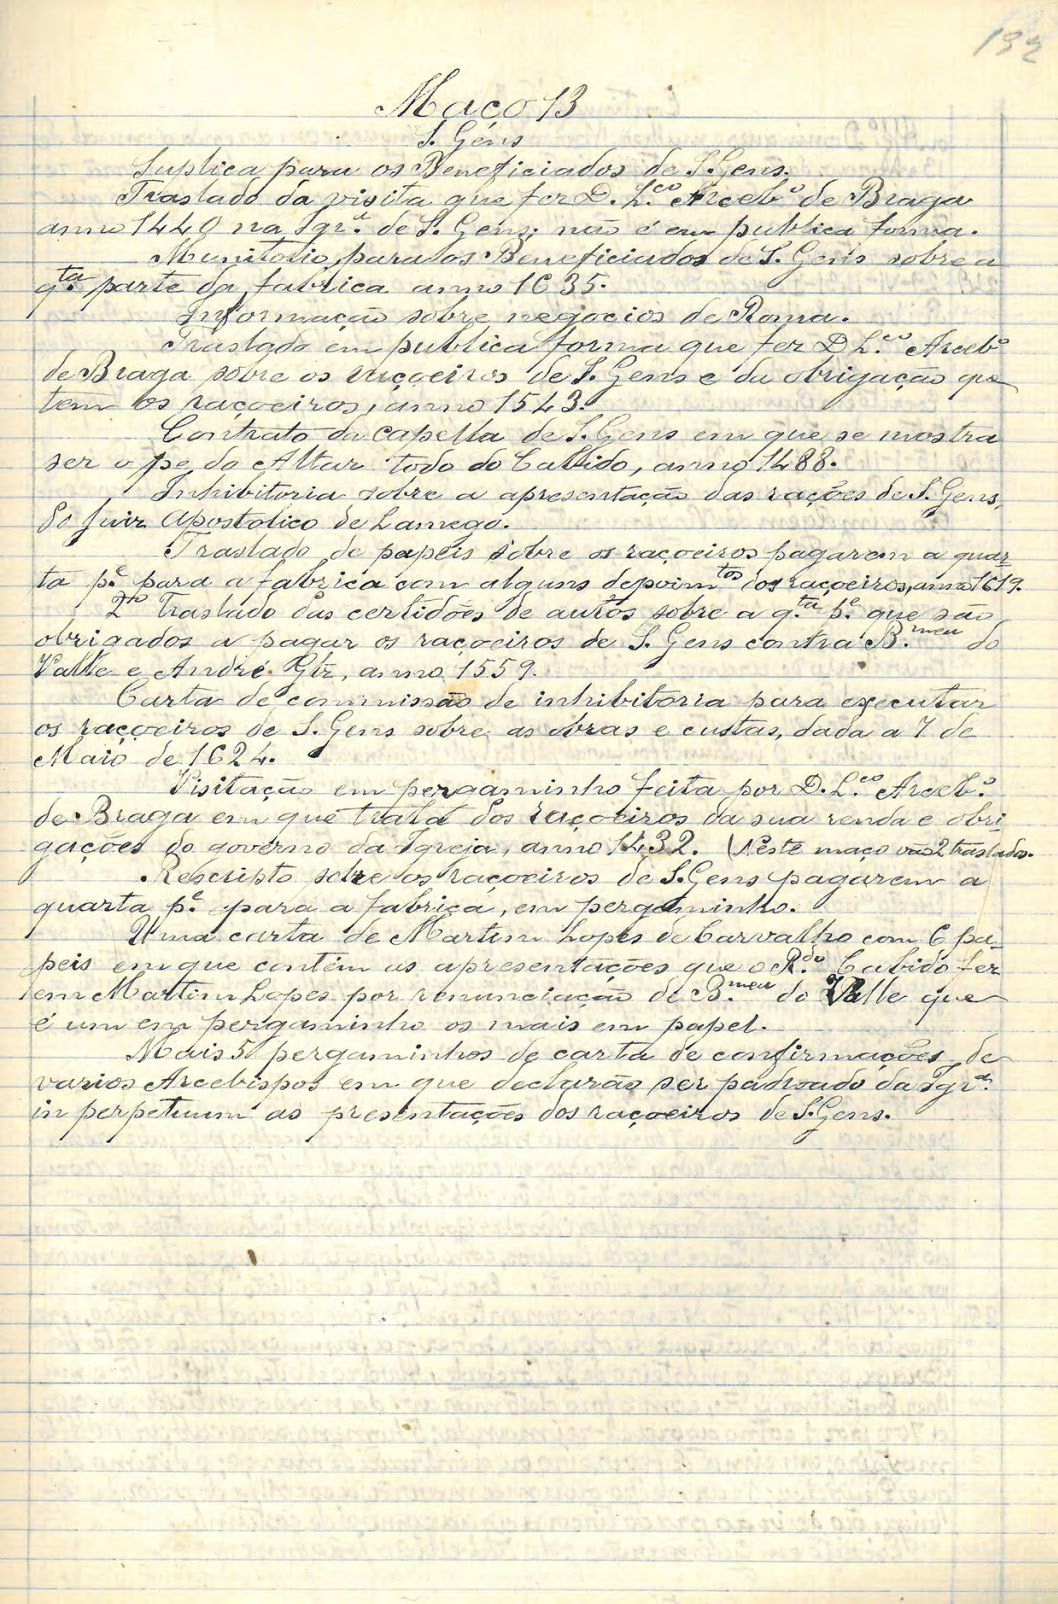 132
Maço 13
S. Gens
Suplica para os Beneficiados de S. Gens.
Traslado da visita que fez D. L.co Arceb.o de Braga
anno 1440 na Igr.a de S. Gens; não é em publica forma.
Munitorio para os Beneficiados de S. Gens sobre a
q.ta parte da fabrica anno 1635.
Informação sobre negocios de Roma.
Traslado em publica forma que fez D L.co Arceb.o
de Braga sobre os raçoeiros de S. Gens e da obrigação que
tem os raçoeiros, anno 1543.
Contrato da capella de S. Gens em que se mostra
ser o pe do Altar todo do Cabido, anno 1488.
Inhibitoria sobre a apresentação das rações de S. Gens,
do Juiz Apostolico de Lamego.
Traslado de papeis sobre os raçoeiros pagarem a quar
ta p.e para a fabrica com alguns depoim.tos dos raçoeiros, anno 1619.
2.o Traslado das certidões de autos sobre a q.ta p.e que são
obrigados a pagar os raçoeiros de S. Gens contra B.meu do
Valle e André Glz, anno 1559.
Carta de comissão de inhibitoria para executar
os raçoeiros de S. Gens sobre as obras e custas, dada a 7 de
Maio de 1624.
Visitação em pergaminho feita por D. L.co Arceb.o
de Braga em que trata dos raçoeiros da sua renda e obri
gações do governo da Igreja, anno 1432. (Neste maço vão 2 traslados.
Rescripto sobre os raçoeiros de S. Gens pagarem a
quarta p.e para a fabrica, em pergaminho.
Uma carta de Martim Lopes de Carvalho com 6 pa-
peis em que contém as apresentações que o R.do Cabido fez
em Martim Lopes por renunciação de B.meu do Valle que
é um em pergaminho os mais em papel.
Mais 5 pergaminhos de carta de confirmações de
varios Arcebispos em que declarão ser padroado da Igr.a
in perpetuum as presentações dos raçoeiros de S. Gens.